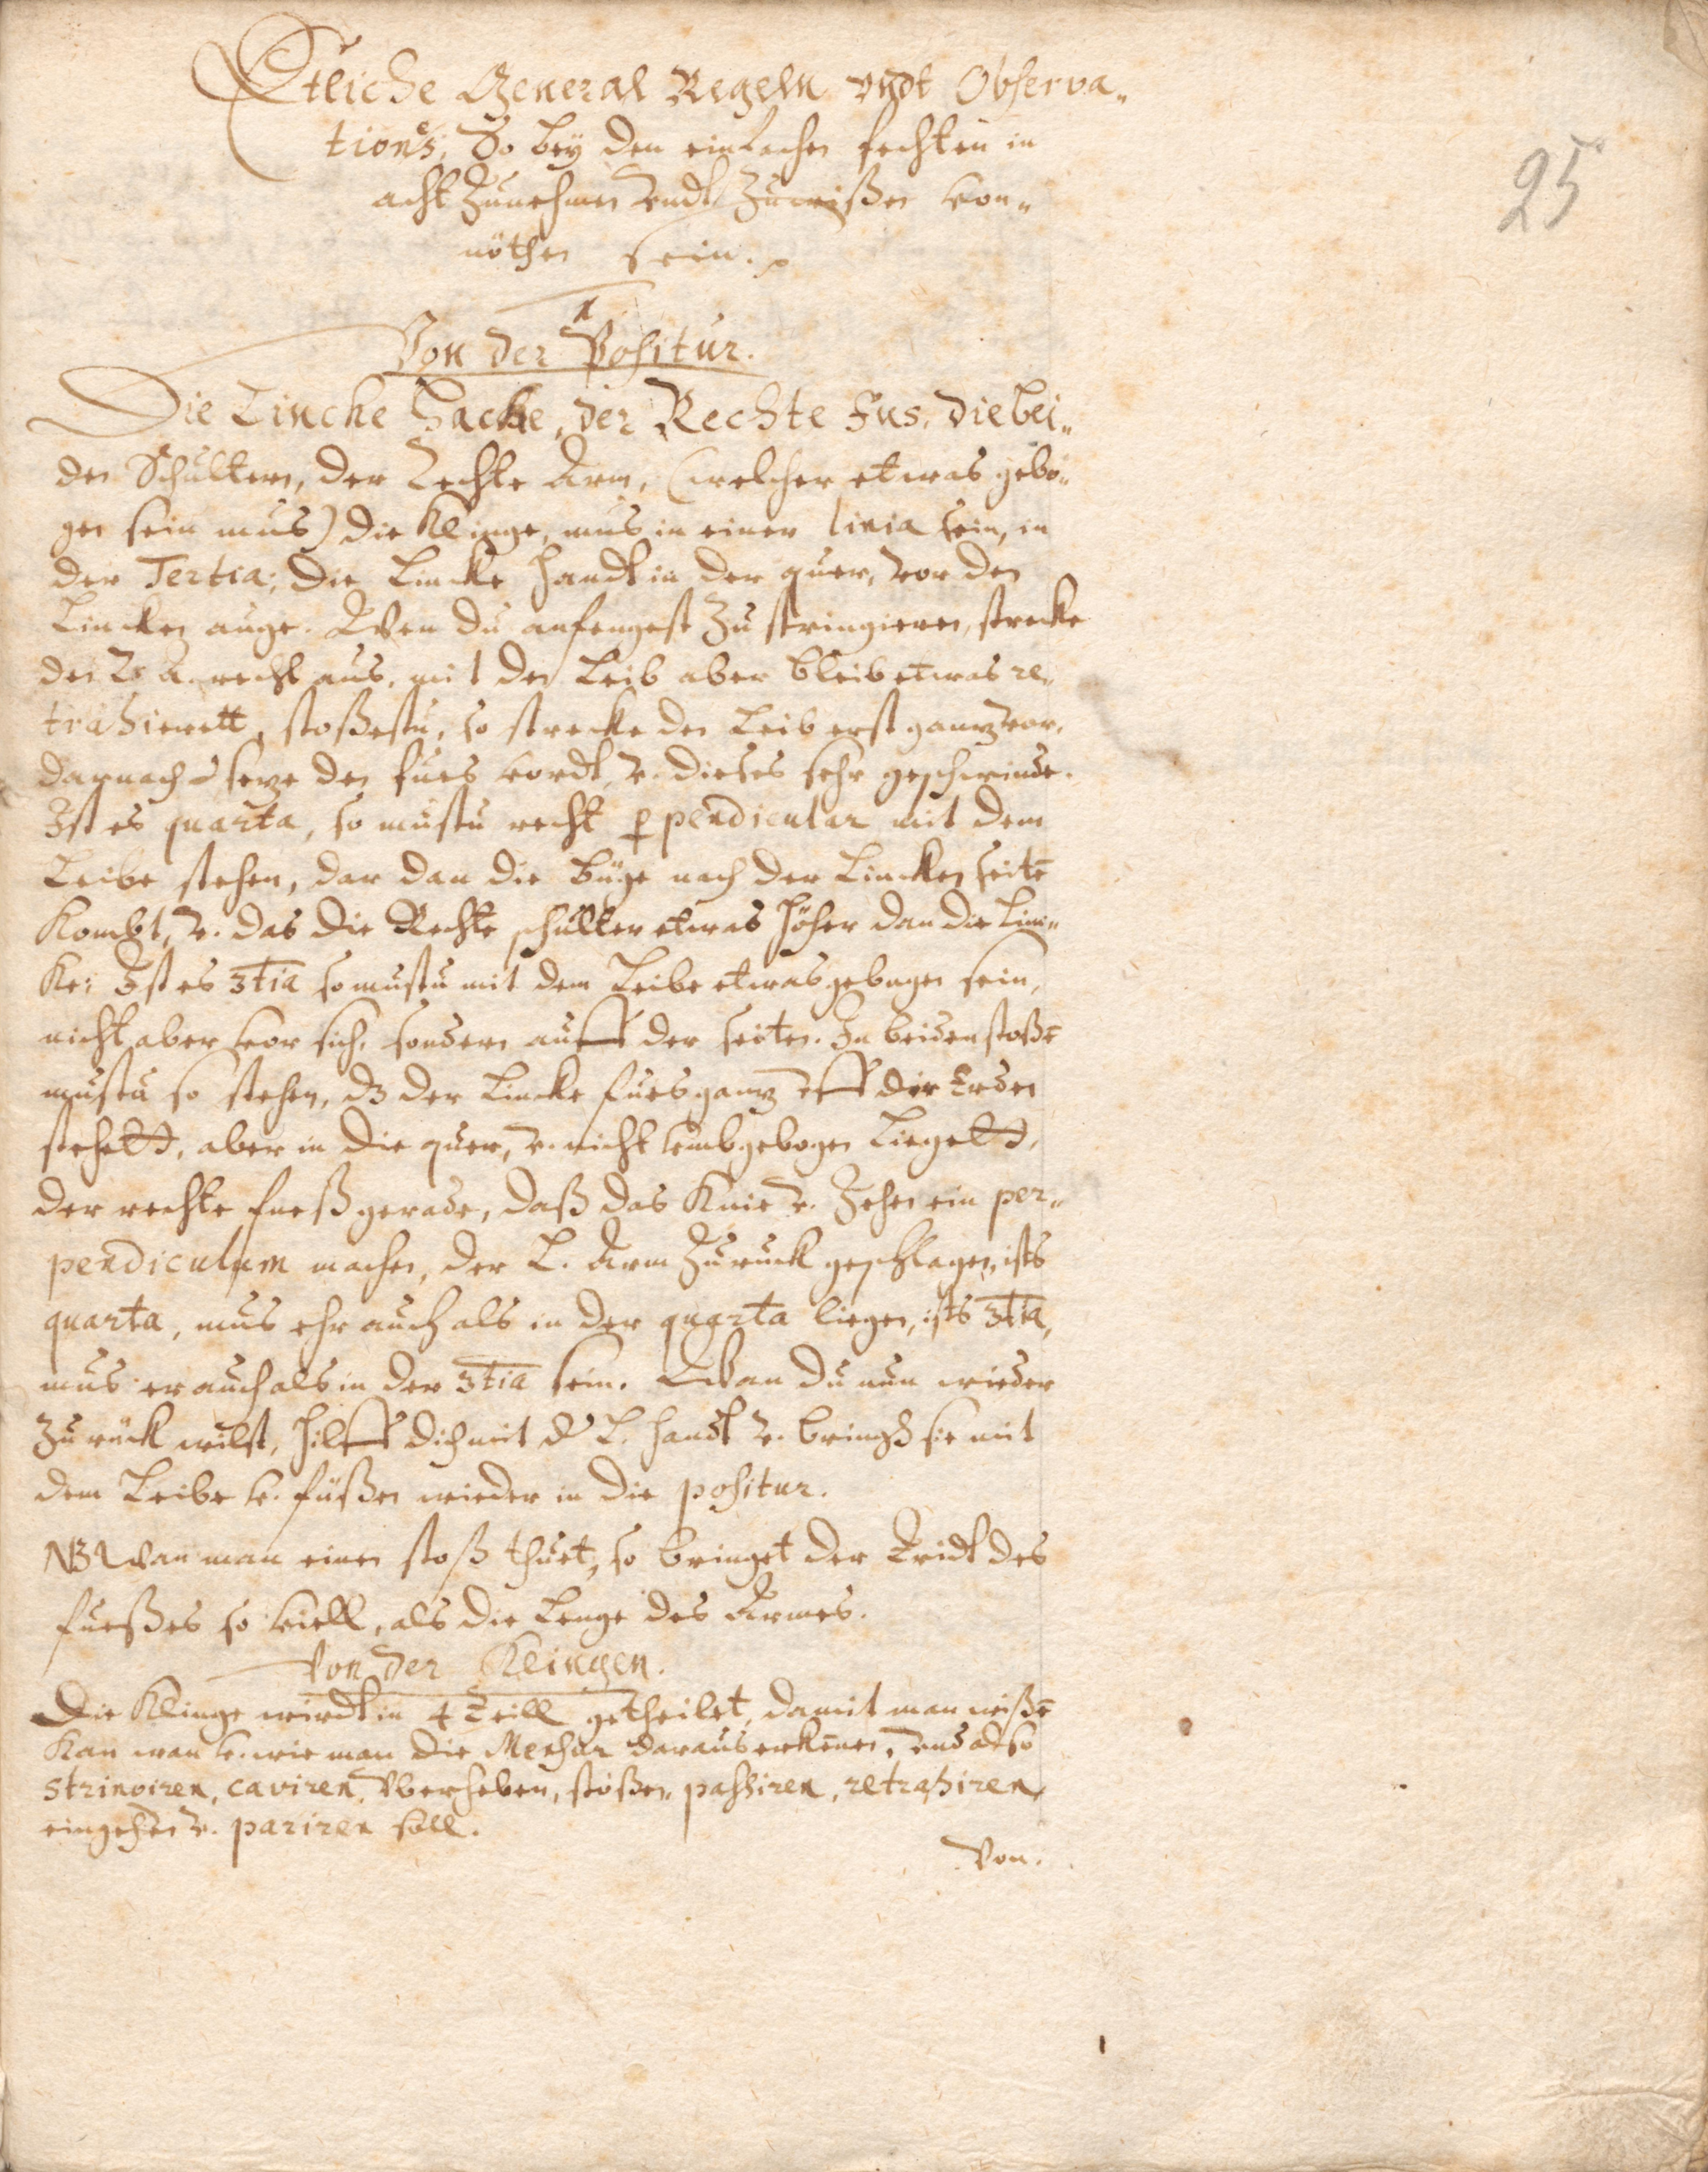 Etliche General Regeln vndt Observa„
tiones, So bey den einfachen fechten in
acht Zunehmen vndt Zuwißen von„
nöthen sein.
25
1
Von der Positur.
Die Lincke Hacke, der Rechte Fus, die bei„
den Schultern, der Rechte Arm, (welcher etwas gebo„
gen sein mus) die Klinge, mus in einer linia sein, in
der Tertia; Die Lincke handt in der quer, vor den
Lincken auge. Wen du anfengest Zu stringieren, strecke
den R. A. recht aus, mit den Leib aber bleib etwas re„
trahierett, stoßestu, so strecke den Leib erst gantz vor,
darnach setze den fues vordt, v. dieses sehr geschwinde.
Ist es quarta, so mustu recht ppendicular mit dem
Leibe stehen, dar dan die büge nach der Lincken seitē
Kombt, v. das die Rechte schulter etwas höher dan die Lin„
ke; Ist es 3tia so mustu mit dem Leibe etwas gebogen sein,
nicht aber vor sich, sondern auff der seiten. In beiden stoßē
mustu so stehen, dz der Lincke fues gantz vff der Erden
stehett, aber in die quer, v. nicht vmbgebogen Liegett,
der rechte fueß gerade, daß das Knie v. Zehen ein per„
pendiculum machen, der L. Arm Zuruck geschlagen, ists
quarta, mus ehr auch als in der quarta liegen, ists 3tia,
mus er auch als in der 3tia sein. Wan du nun wieder
Zu rück wilst, hilff dich mit d L. handt v. bringß sie mit
dem Leibe v. füßen wieder in die positur.
NB Wan man einen stoß thuet, so bringet der Tridt des
fueßes so viell, als die Lenge des Armes.
Von der Klingen.
Die Klinge wirdt in 4 Teill getheilet, damit man wißē
Kan wan v. wie man die Mensur daraus erkennen, vnd also
stringiren, caviren, Vberheben, stoßen, passiren, retrahiren,
eingehen v. pariren soll.
Von.